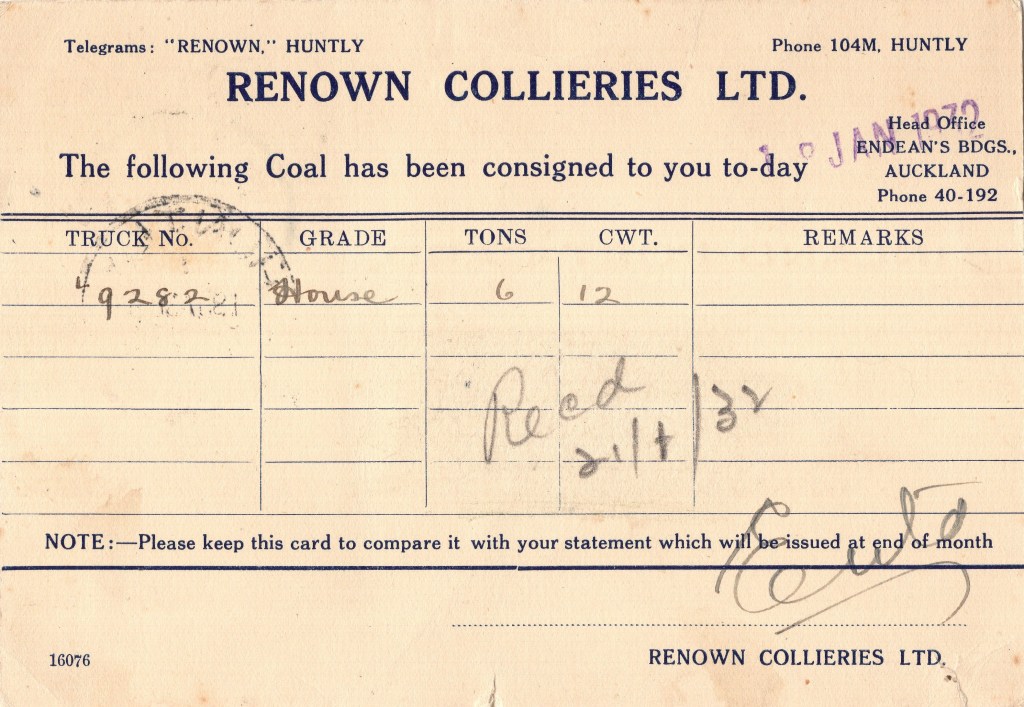 Telegrams: "RENOWN," HUNTLY
Phone 104M, HUNTLY
RENOWN COLLIERIES LTD.
Head Office
ENDEAN'S BDGS.,
AUCKLAND
Phone 40-192
JAN
The following Coal has been consigned to you to-day
TRUCK No. GRADE TONS CWT. REMARKS
9282 House 6 12
Recd
21/1/32
NOTE:—Please keep this card to compare it with your statement which will be issued at end of month
Entd
16076
RENOWN COLLIERIES LTD.